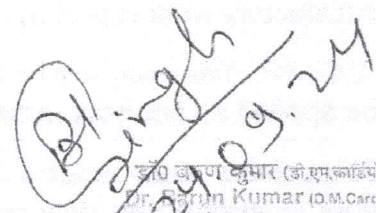 Singh
24/09/24
डॉ० वरुण कुमार (डी.एम.कार्डियो
Dr. Barun Kumar (D.M.Card